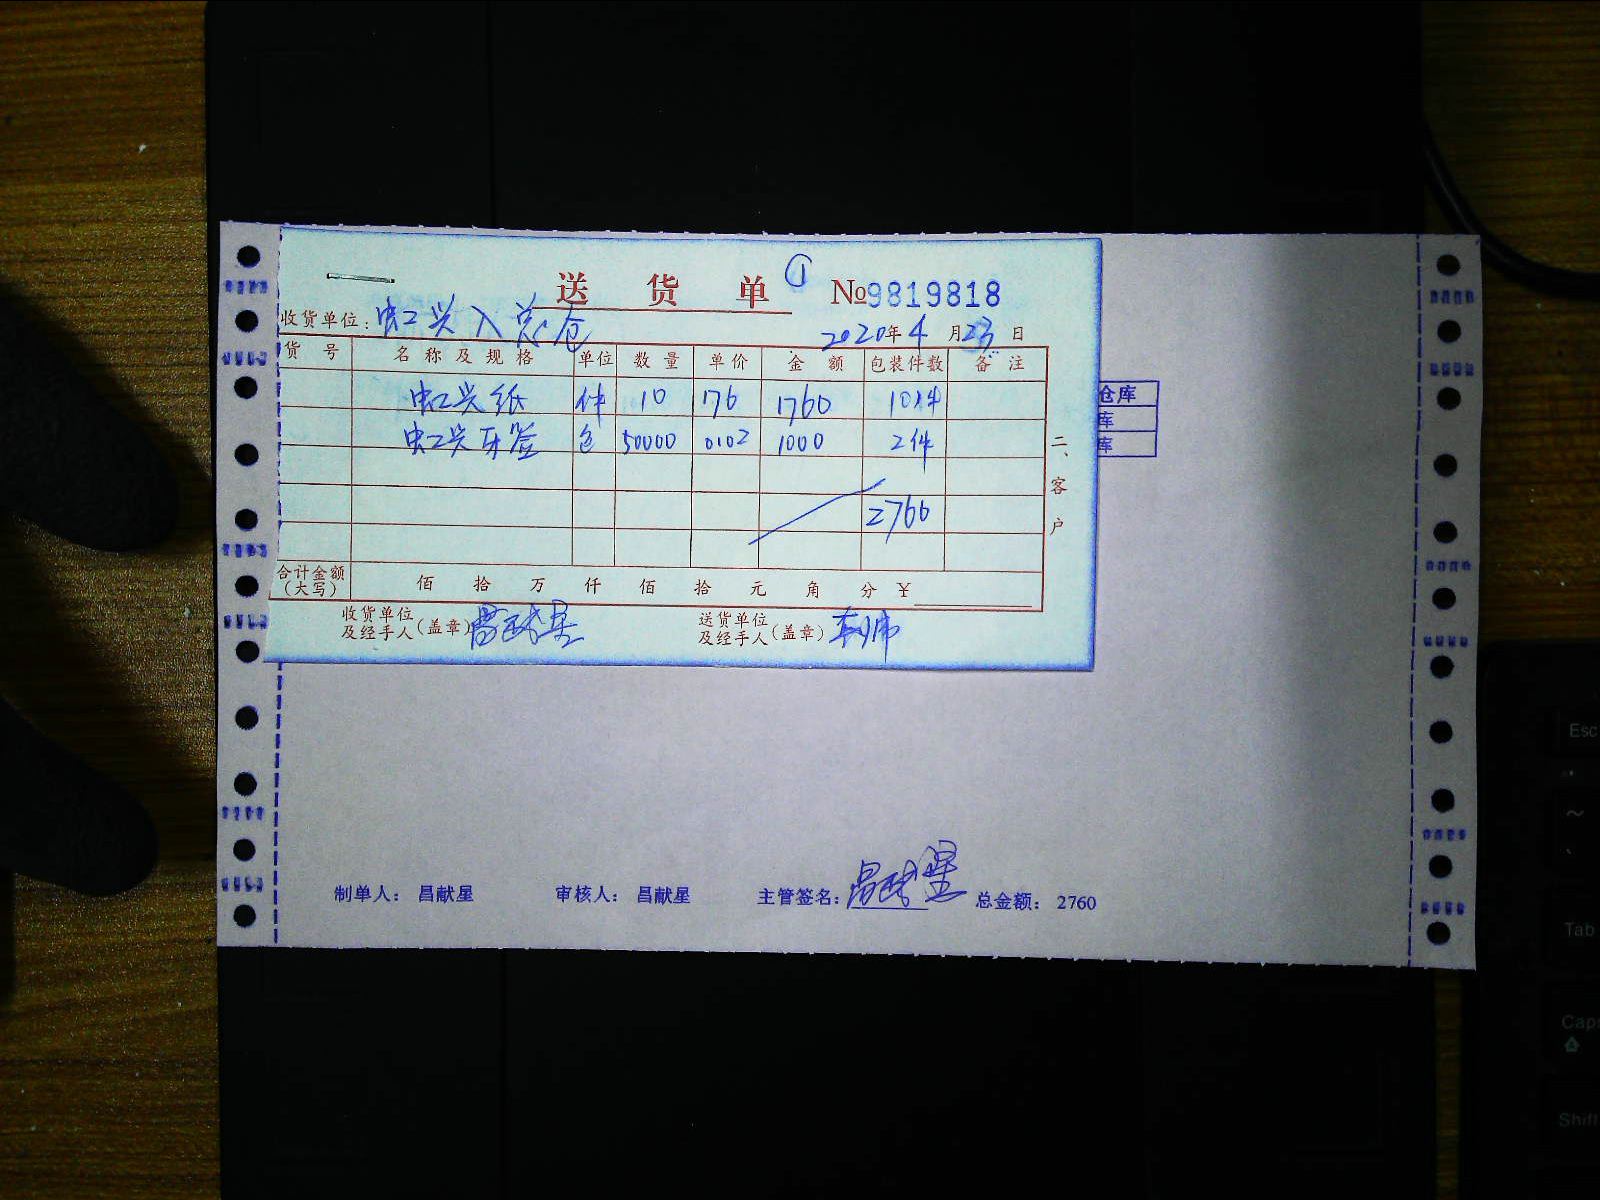 送 货 单 ① №9819818
收货单位: 虹兴入总仓 2020年4月23日
货号 名称及规格 单位 数量 单价 金额 包装件数 备注
虹兴纸 件 10 176 1760 10件
虹兴牙签 包 50000 0.02 1000 2件
2760
合计金额(大写) 佰 拾 万 仟 佰 拾 元 角 分 ¥
收货单位及经手人(盖章) 昌献星 送货单位及经手人(盖章)
二、客户
仓库
库
库
制单人: 昌献星 审核人: 昌献星 主管签名: 昌献星 总金额: 2760
Esc
~
Tab
Caps
Shift